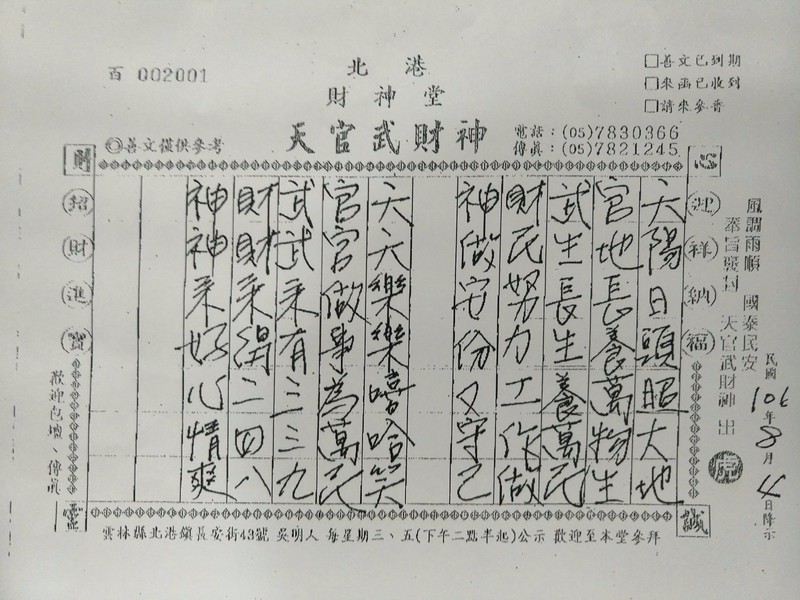 百 002001
北港
財神堂
天官武財神
◎善文僅供參考
電話：(05)7830366
傳眞：(05)7821245
□善文已到期
□來函已收到
□請來參香
風調雨順 國泰民安
奉旨發封 天官武財神 出
民國106年8月4日降示
心
迎祥納福
誠
天陽日頭照大地
官地長養萬物生
武生長生養萬民
財民努力工作做
神做安份又守己
天天樂樂嘻哈笑
官官做事為萬民
武武來有三三九
財財來得二四八
神神來好心情爽
財
招財進寶
靈
歡迎包壇、傳眞
雲林縣北港鎮長安街43號 吳明人 每星期三、五(下午二點半起)公示 歡迎至本堂參拜